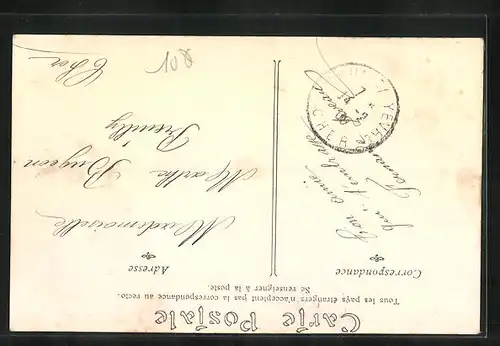 Carte Postale
Tous les pays étrangers n'acceptent pas la correspondance au recto.
Se renseigner à la poste.
Correspondance
Adresse
Ton amie
qui t'embrasse
Mademoiselle
Martha Bugeon
Preuilly
Cher
108
CHER